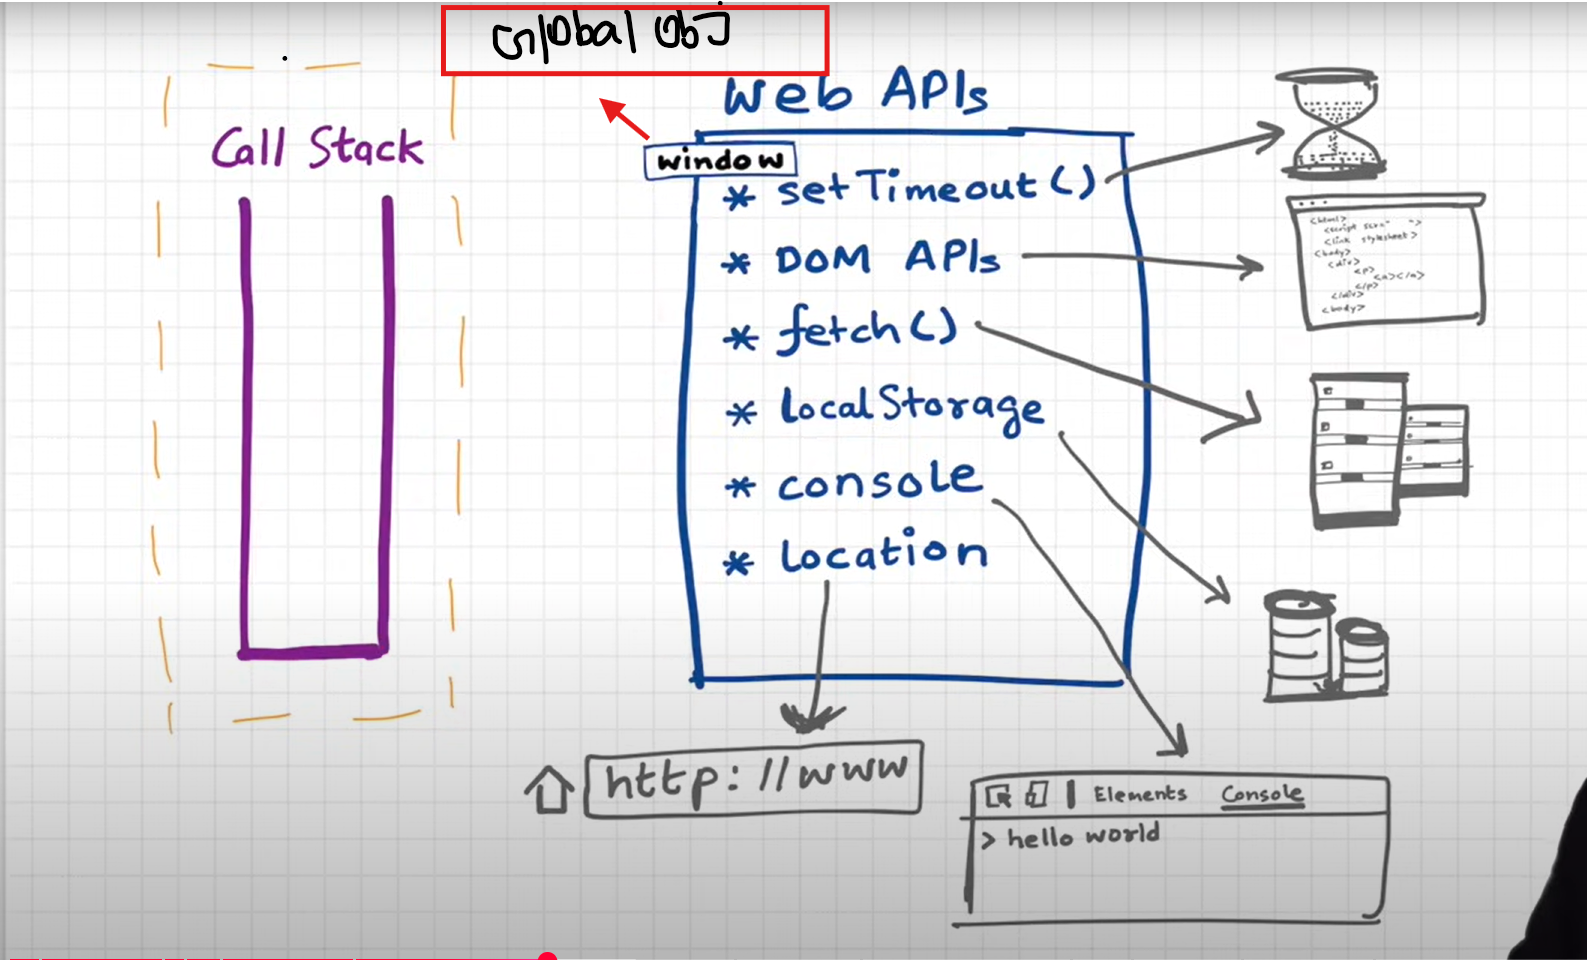 Global Obj
Web APIs
Call Stack
window
* setTimeout()
* DOM APIs
* fetch()
* localStorage
* console
* location
<html>
<link stylesheet>
<body>
<div>
<p>
<a></a>
</p>
</div>
<body>
http://www
Elements Console
> hello world